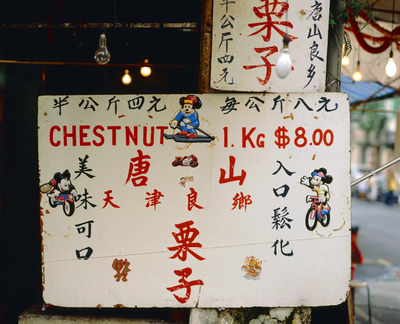 半公斤四元
栗子
唐山良乡
半公斤四元 每公斤八元
CHESTNUT 1. KG $8.00
唐山
天津良鄉
栗子
美味可口
入口鬆化